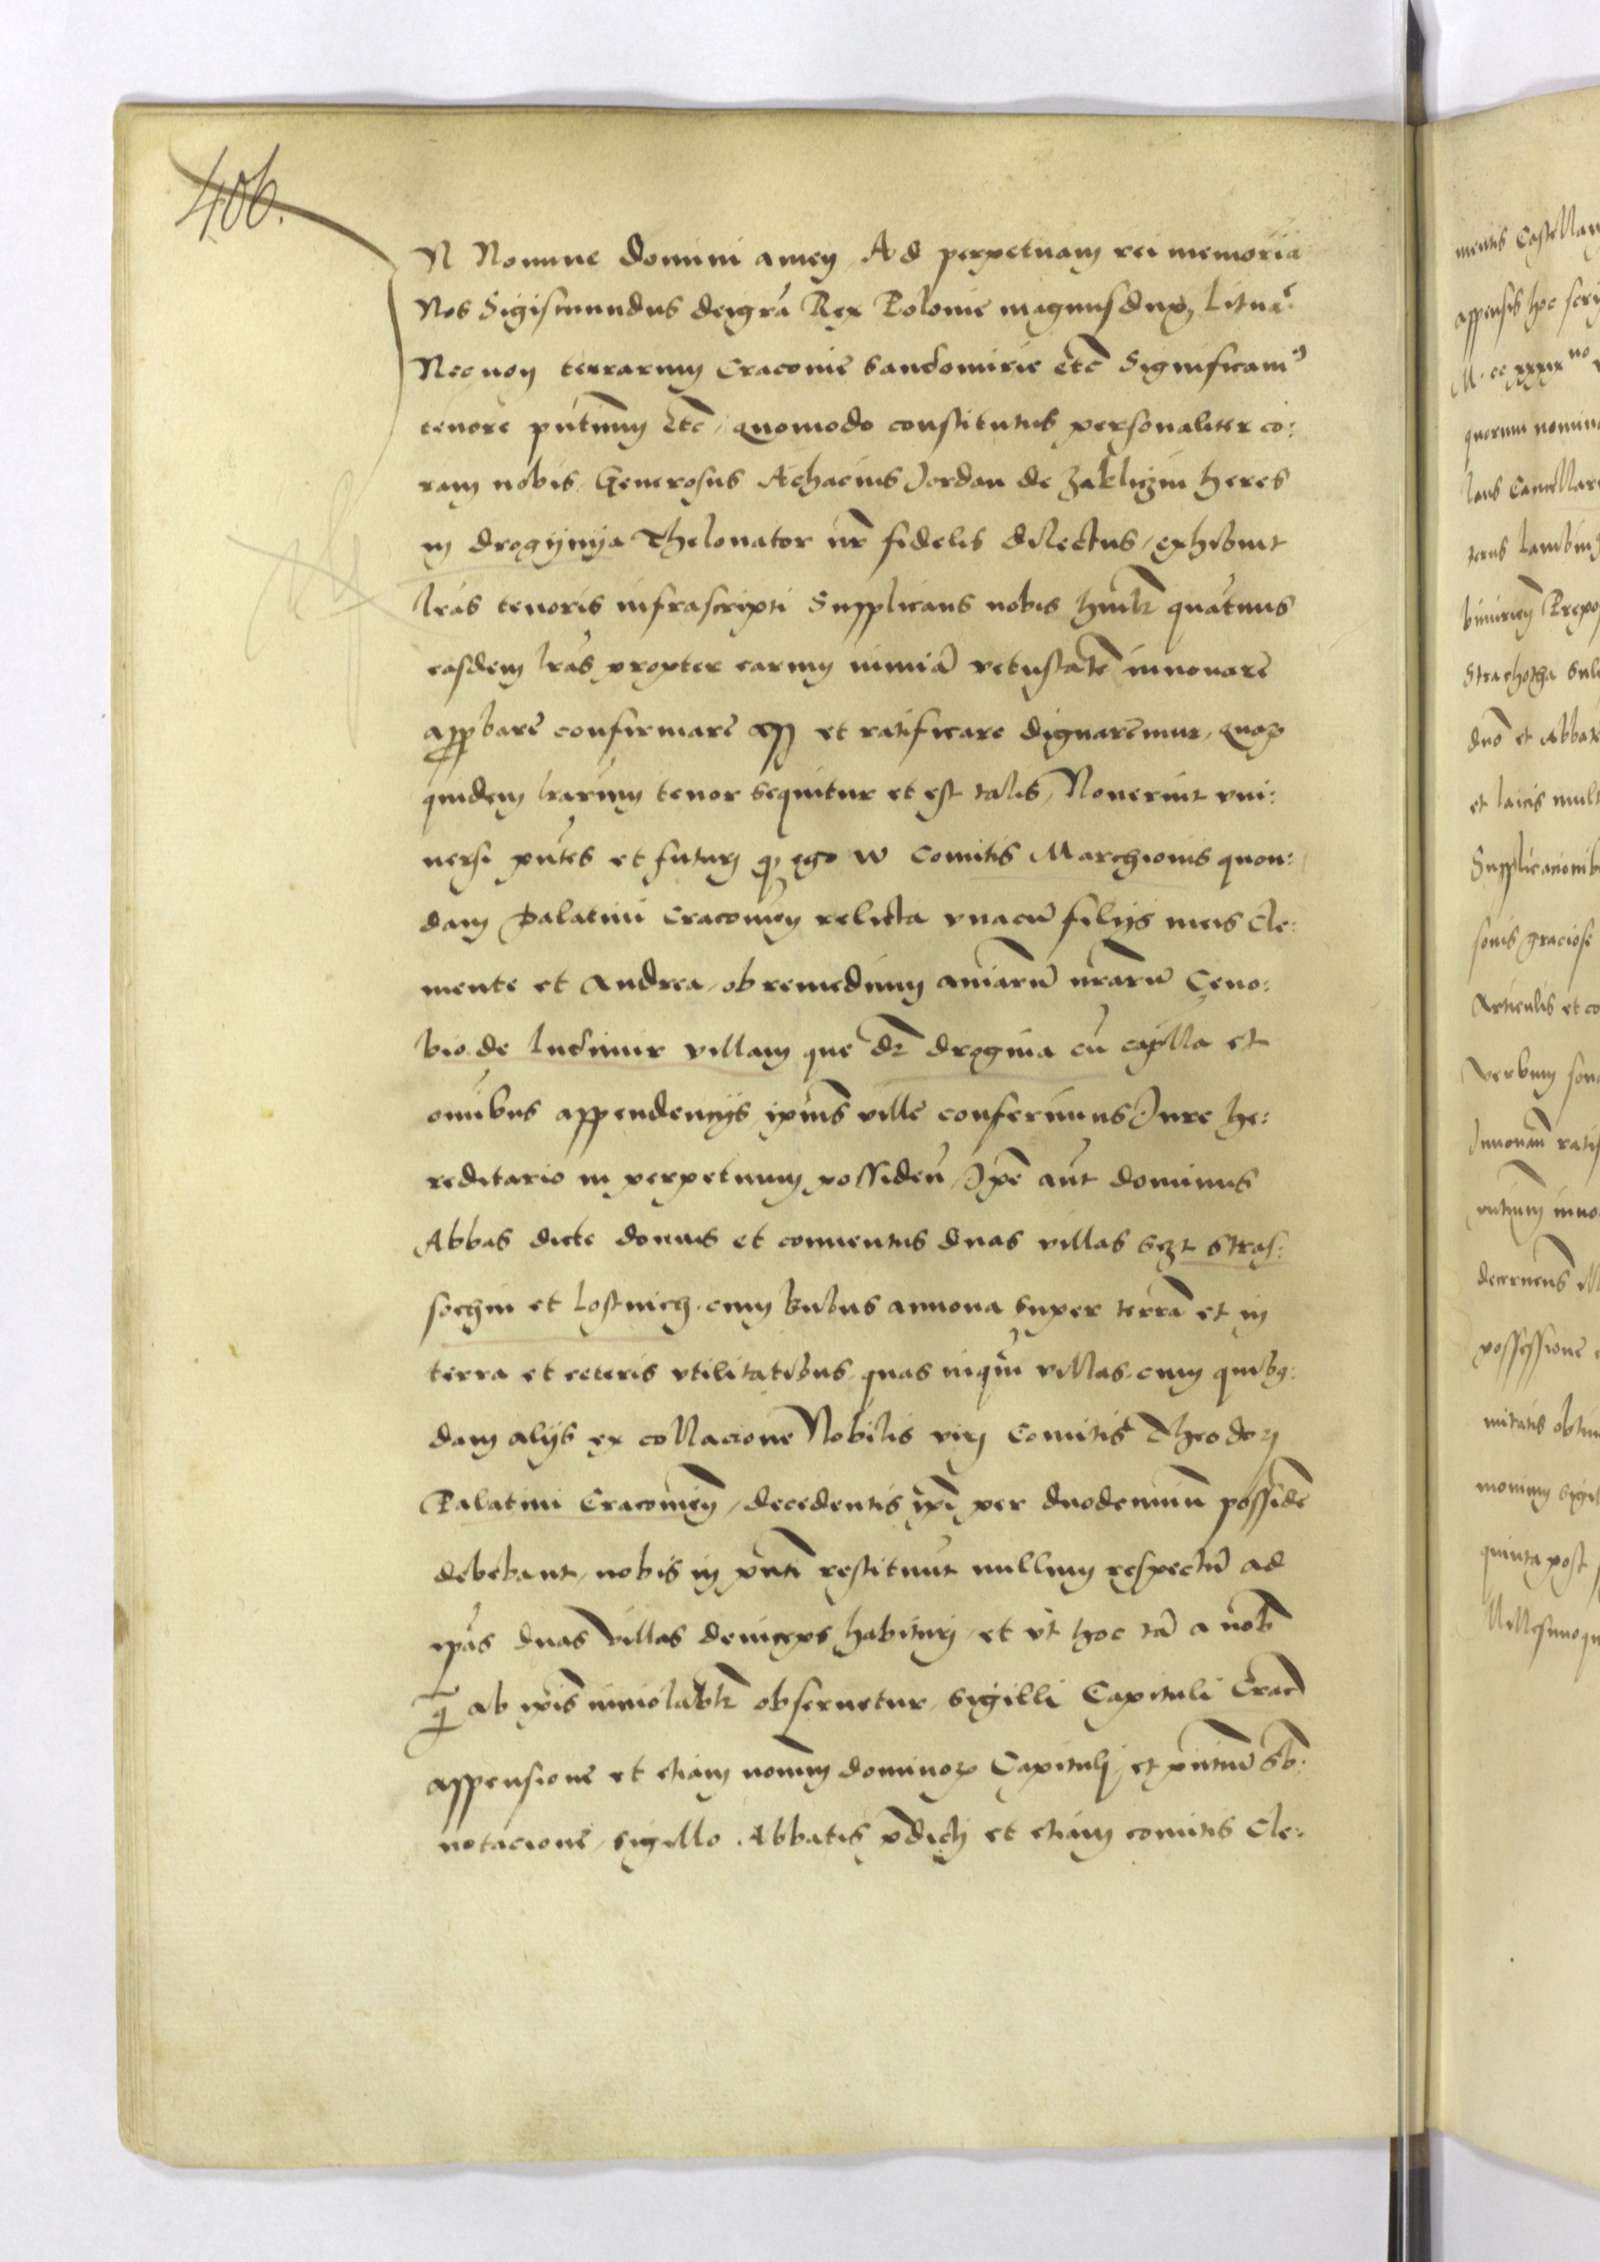 406.
N Nomine domini amen Ad perpetuam rei memoria
Nos Sigismundus dei gra Rex Polonie magnus dux Litua
Nec non terrarum Cracovie Sandomirie etc Significam9
tenore pntium etc quomodo constitutus personaliter co:
ram nobis Generosus Achacius Jordan de Zakliczin heres
in drogijnija Thelonator nr fidelis dilectus exhibuit
lras tenoris infrascripti Supplicans nobis humlr quatnus
easdem lras propter earum nimia vetustate innovare
approbare confirmare et ratificare dignaremur quoz
quidem lrarum tenor sequitur et est talis Noverint vni:
uersi pntes et futurj ego W Comitis Marchionis quon:
dam Palatini Cracovien relicta vnacu filijs meis Cle:
mente et Andrea ob remedium aniaru nraru Ceno:
bio de ludimir villam que dr drogina cu capella et
omibus appendencijs ipius ville conferimus Jure he:
reditario in perpetuum possiden Jpe aut dominus
Abbas dicte domus et conuentus duas villas szt stras:
sechin et Lostnich cum bulus annona super terra et in
terra et ceteris vtilitatibus quas inqm villas cum quibg:
dam alijs ex collacione Nobilis virj Comitis Theodorj
Palatini Cracovien decedentis ipi per duodenium posside
debebant nobis in pnti restituut nullum respectu ad
ipas duas villas deinceps habiturj et vt hoc ta a nob
q ab ipis inviolablr obseruetur sigilli Capituli Crac
appensione et etiam nomin dominoz Capitulj et pntiu sb:
notacione sigillo Abbatis pdictj et etiam comitis Cle:
mentis Castellan
appensis hoc scri
M. cc xxxix no
quorum nomina
laus Cancellari
Strachotha
dno et Abbate
et laicis mult
Supplicacionib
sonis graciose
Articulis et co
verbum
Jnnouan ratif
decernens
possessione
quinta post
Millesimo qu